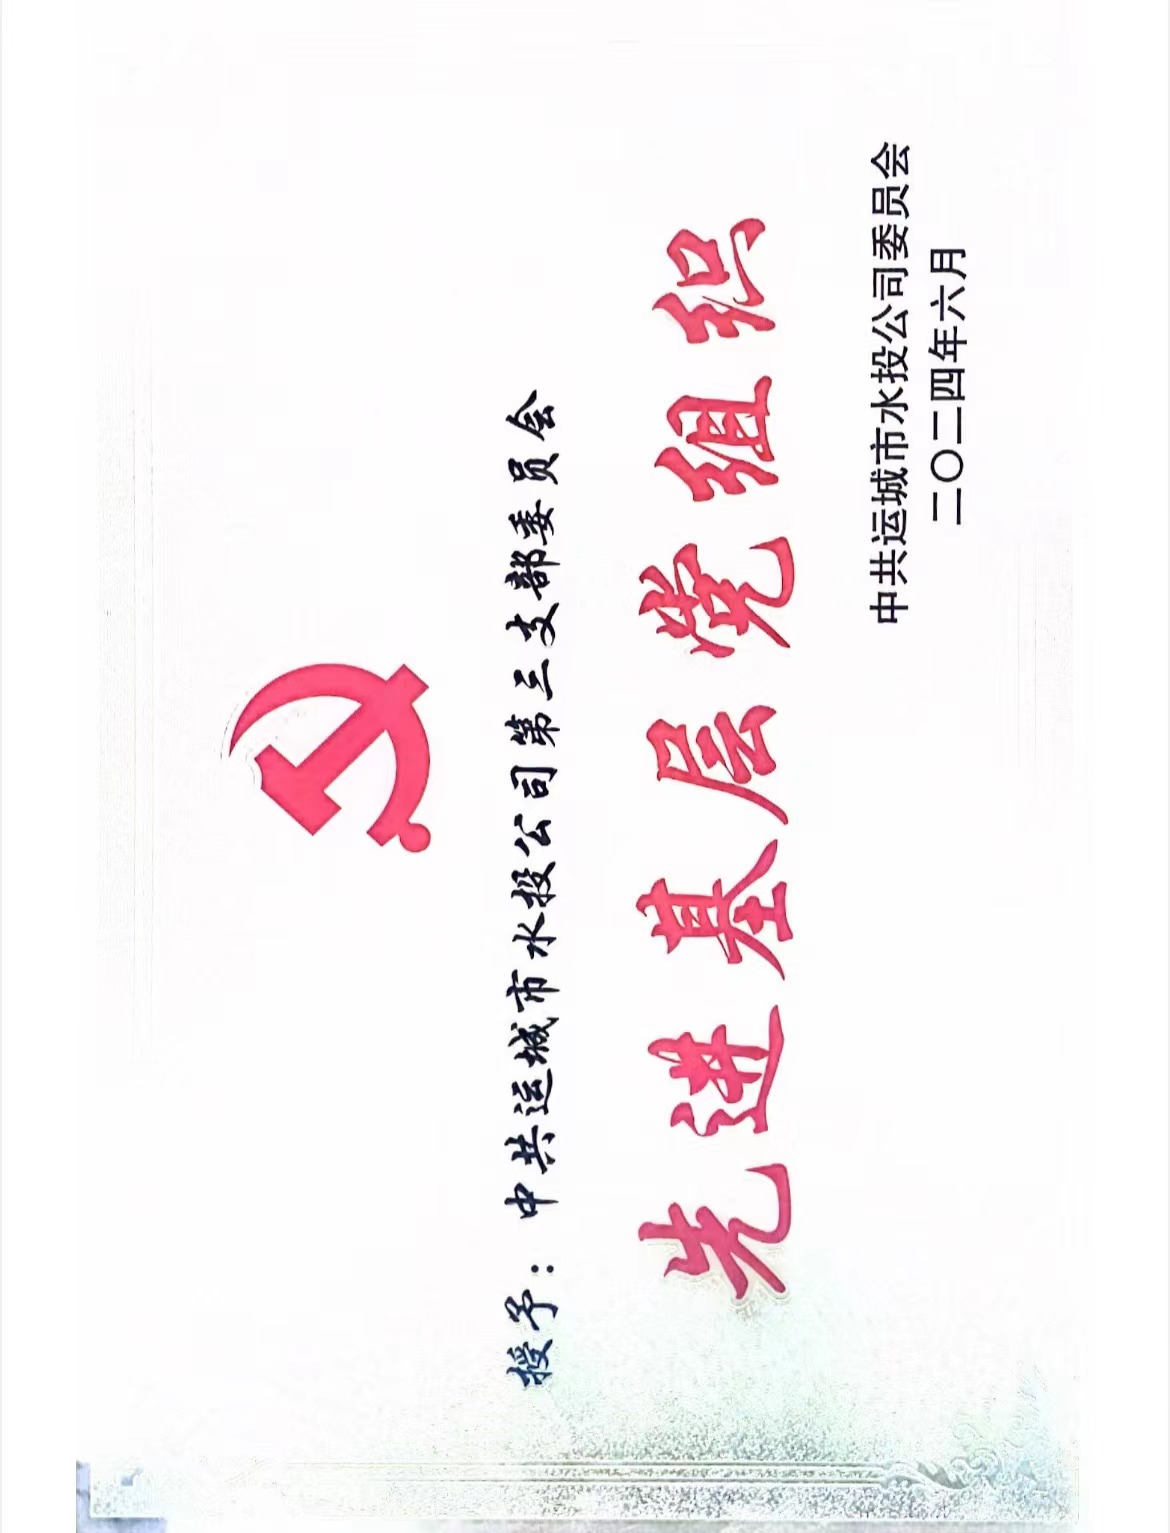 授予：中共运城市水投公司第三支部委员会
先进基层党组织
中共运城市水投公司委员会
二〇二四年六月